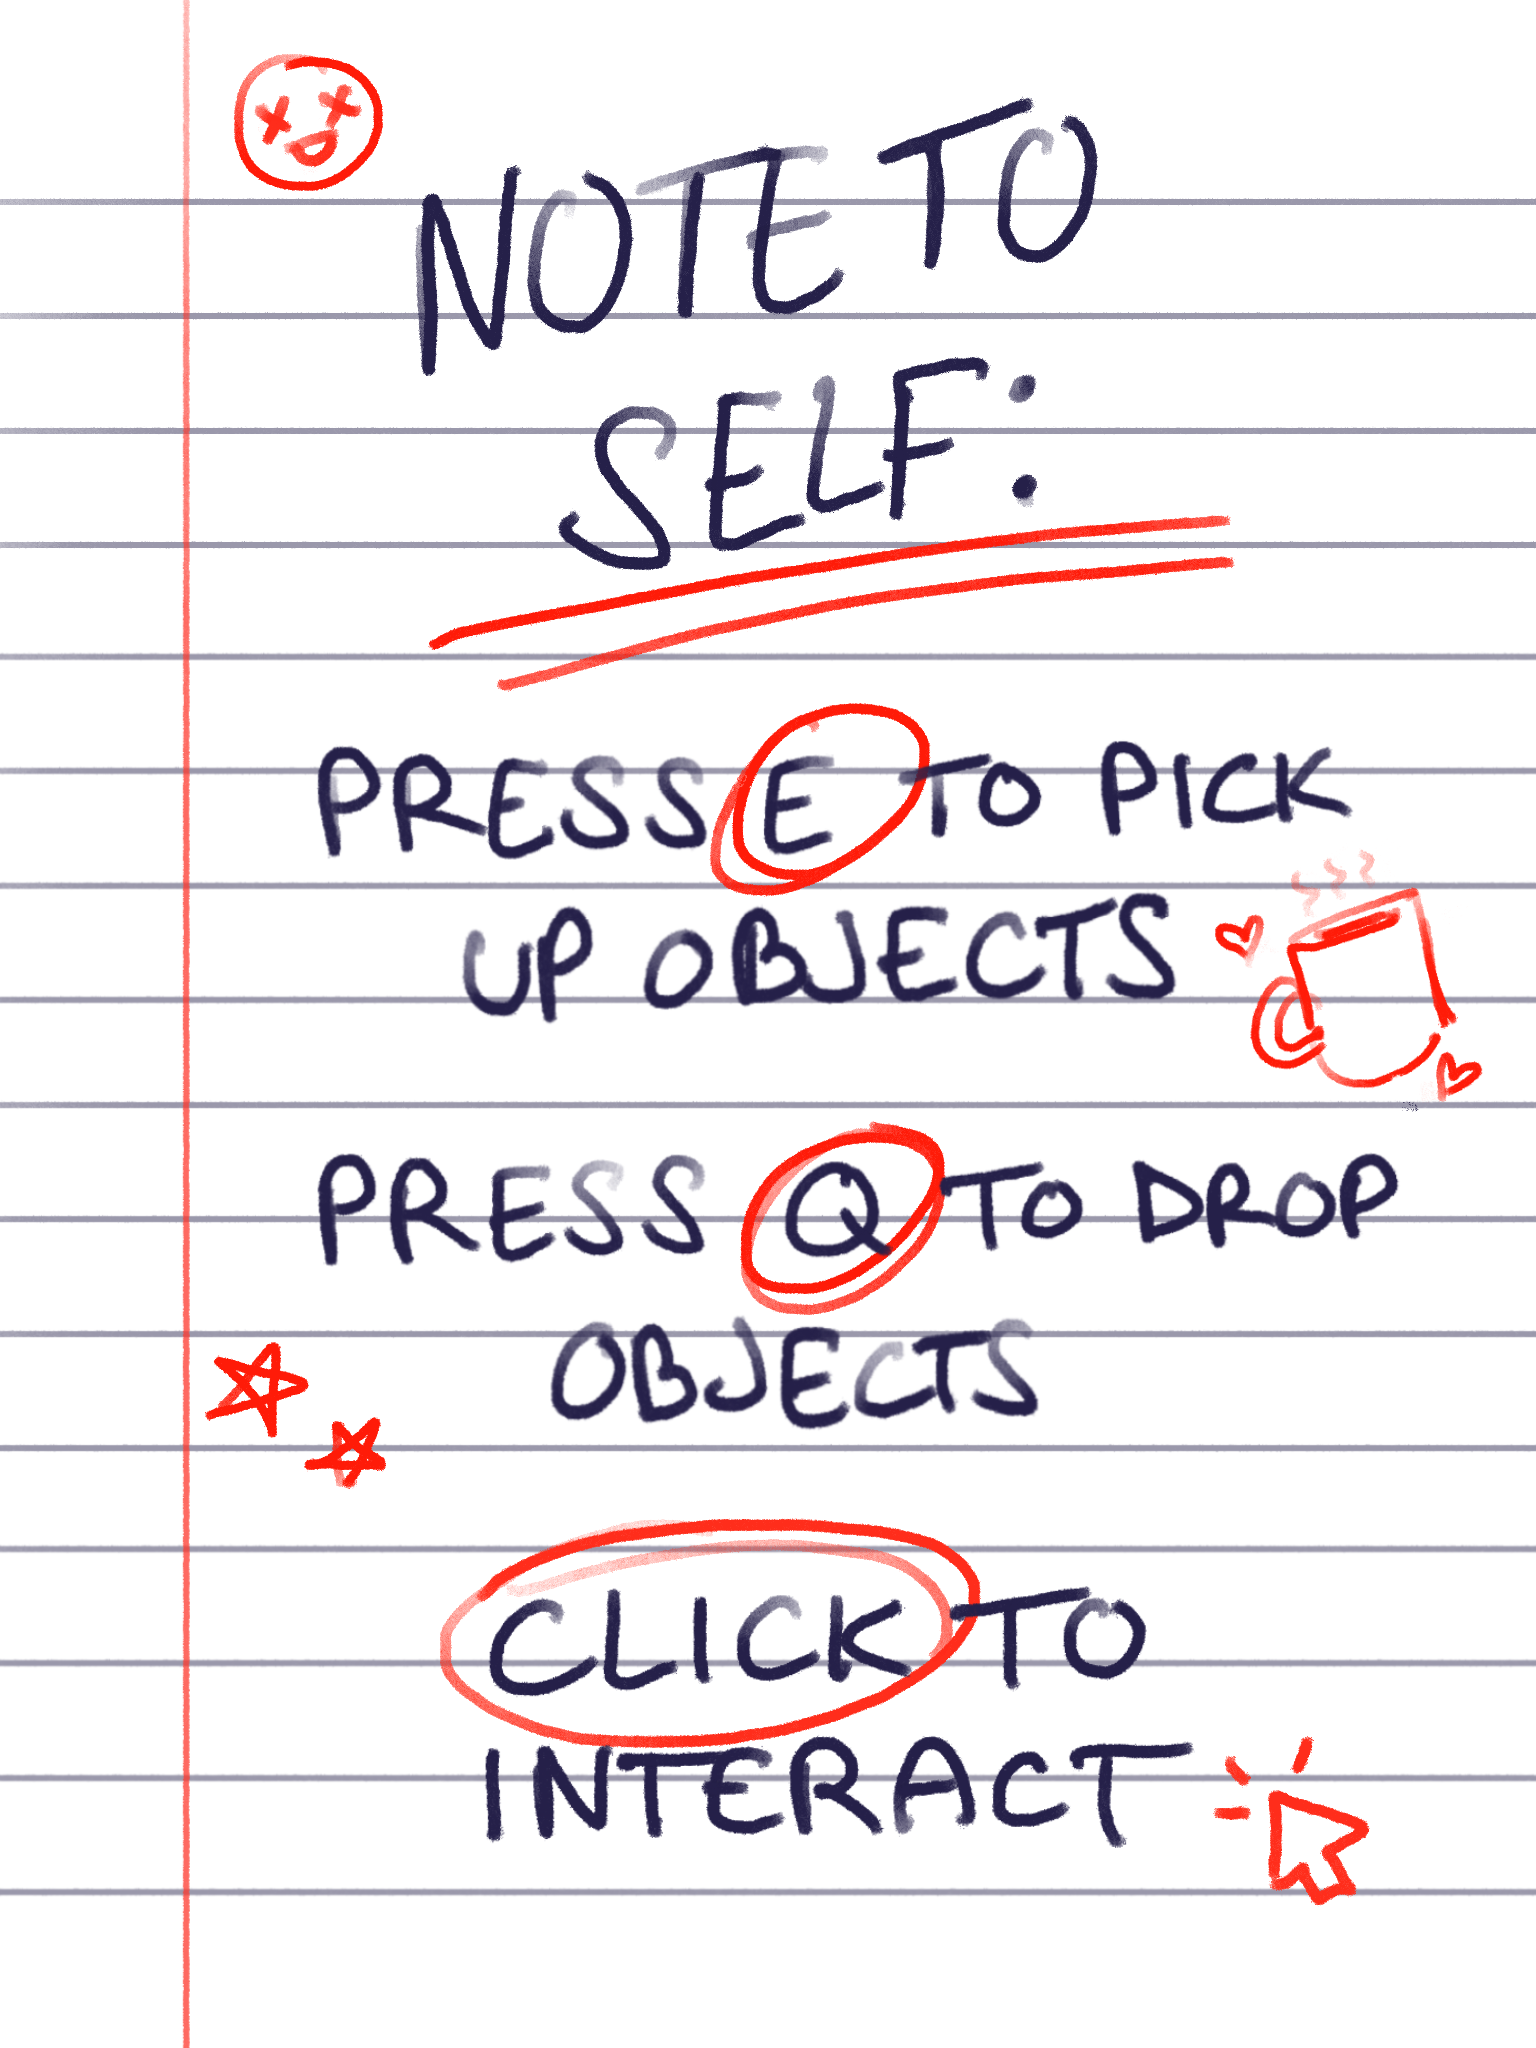 NOTE TO
SELF:
PRESS E TO PICK
UP OBJECTS
PRESS Q TO DROP
OBJECTS
CLICK TO
INTERACT